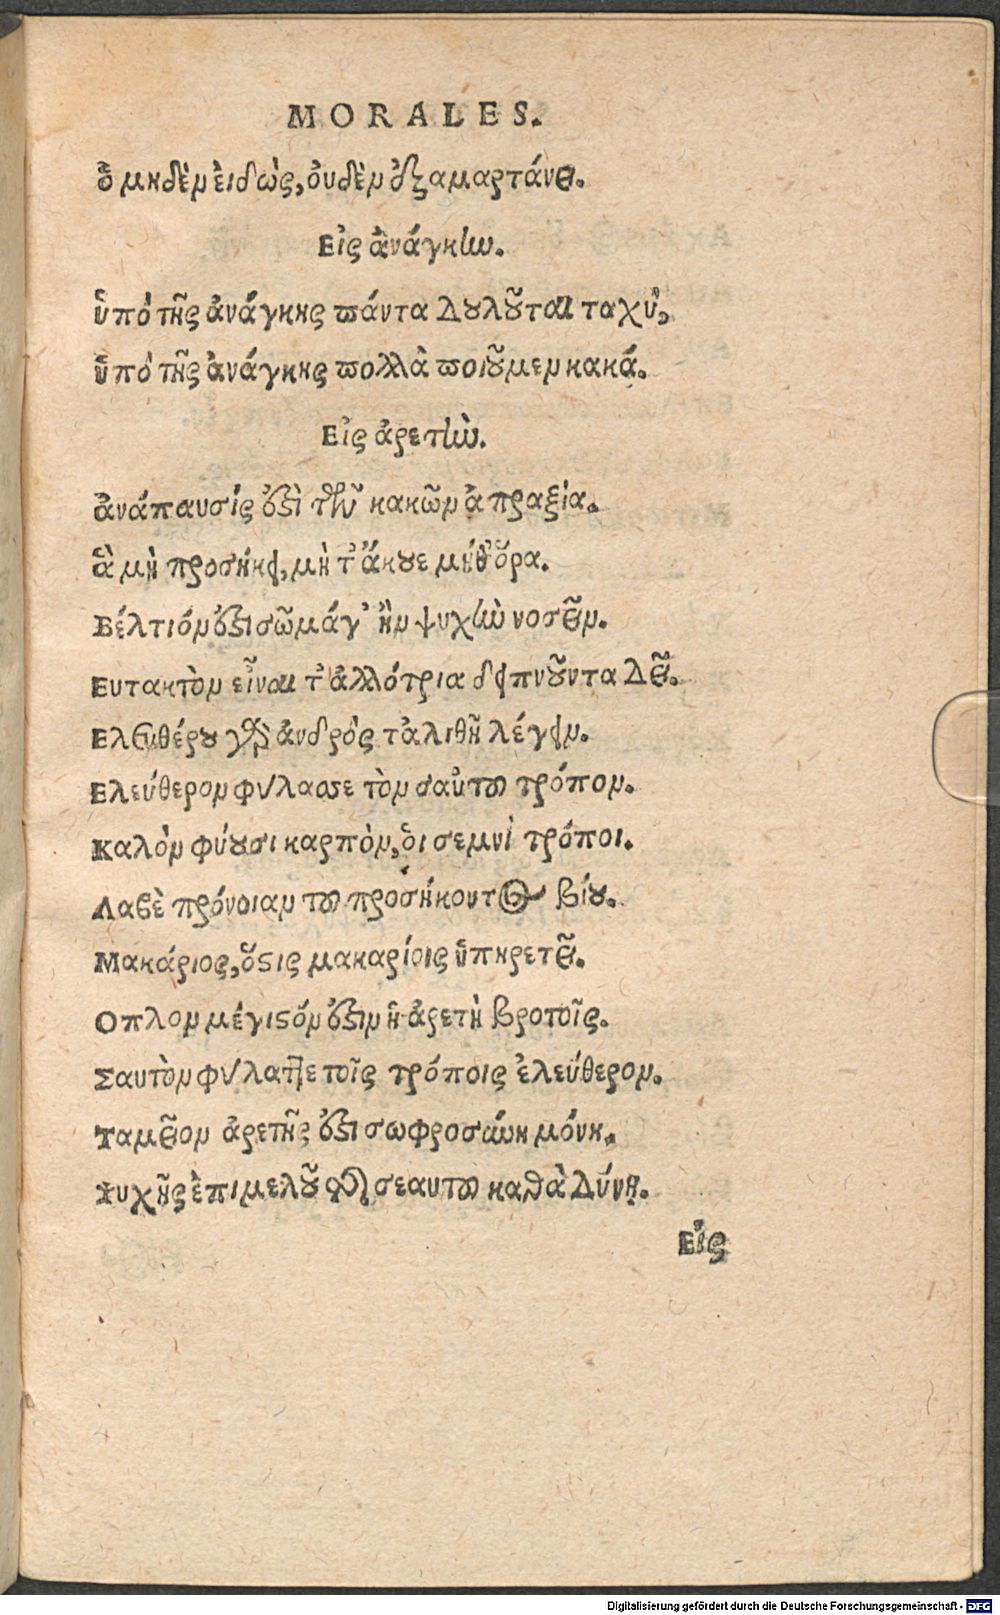 MORALES.
ὃ μηδὲν εἰδὼς, ὀυδὲν ἐξαμαρτάνει.
Εἰς ἀνάγκην.
ὑπὸ τῆς ἀνάγκης πάντα δουλοῦται ταχὺ,
ὑπὸ τῆς ἀνάγκης πολλὰ ποιοῦμεν κακά.
Εἰς ἀρετὴν.
ἀνάπαυσίς ἐστὶ τῶν κακῶν ἀπραξία.
ἃ μὴ προσήκει, μὴ τ' ἄκουε μήθ' ὅρα.
Βέλτιόν ἐστι σῶμά γ' ἢν ψυχὴν νοσεῖν.
Ευτακτὸν εἶναι τ' ἀλλότρια δειπνοῦντα δεῖ.
Ελευθέρου γὰρ ἀνδρὸς τ' ἀλιθῆ λέγειν.
Ελεύθερον φύλασσε τὸν σαὐτου τρόπον.
Καλὸν φύουσι καρπὸν, ὁι σεμνὶ τρόποι.
Λαβὲ πρόνοιαν του προσήκοντος βίου.
Μακάριος, ὅστις μακαρίοις ὑπηρετεῖ.
Οπλον μέγιστόν ἐστιν ἡ ἀρετὴ βροτοῖς.
Σαυτὸν φύλαττε τοῖς τρόποις ἐλεύθερον.
Ταμεῖον ἀρετῆς ἐστι σωφροσύνη μόνη.
Ψυχῆς ἐπιμελοῦ τῆς σεαυτου καθὰ δύνῃ.
Εἰς
Digitalisierung gefördert durch die Deutsche Forschungsgemeinschaft - DFG